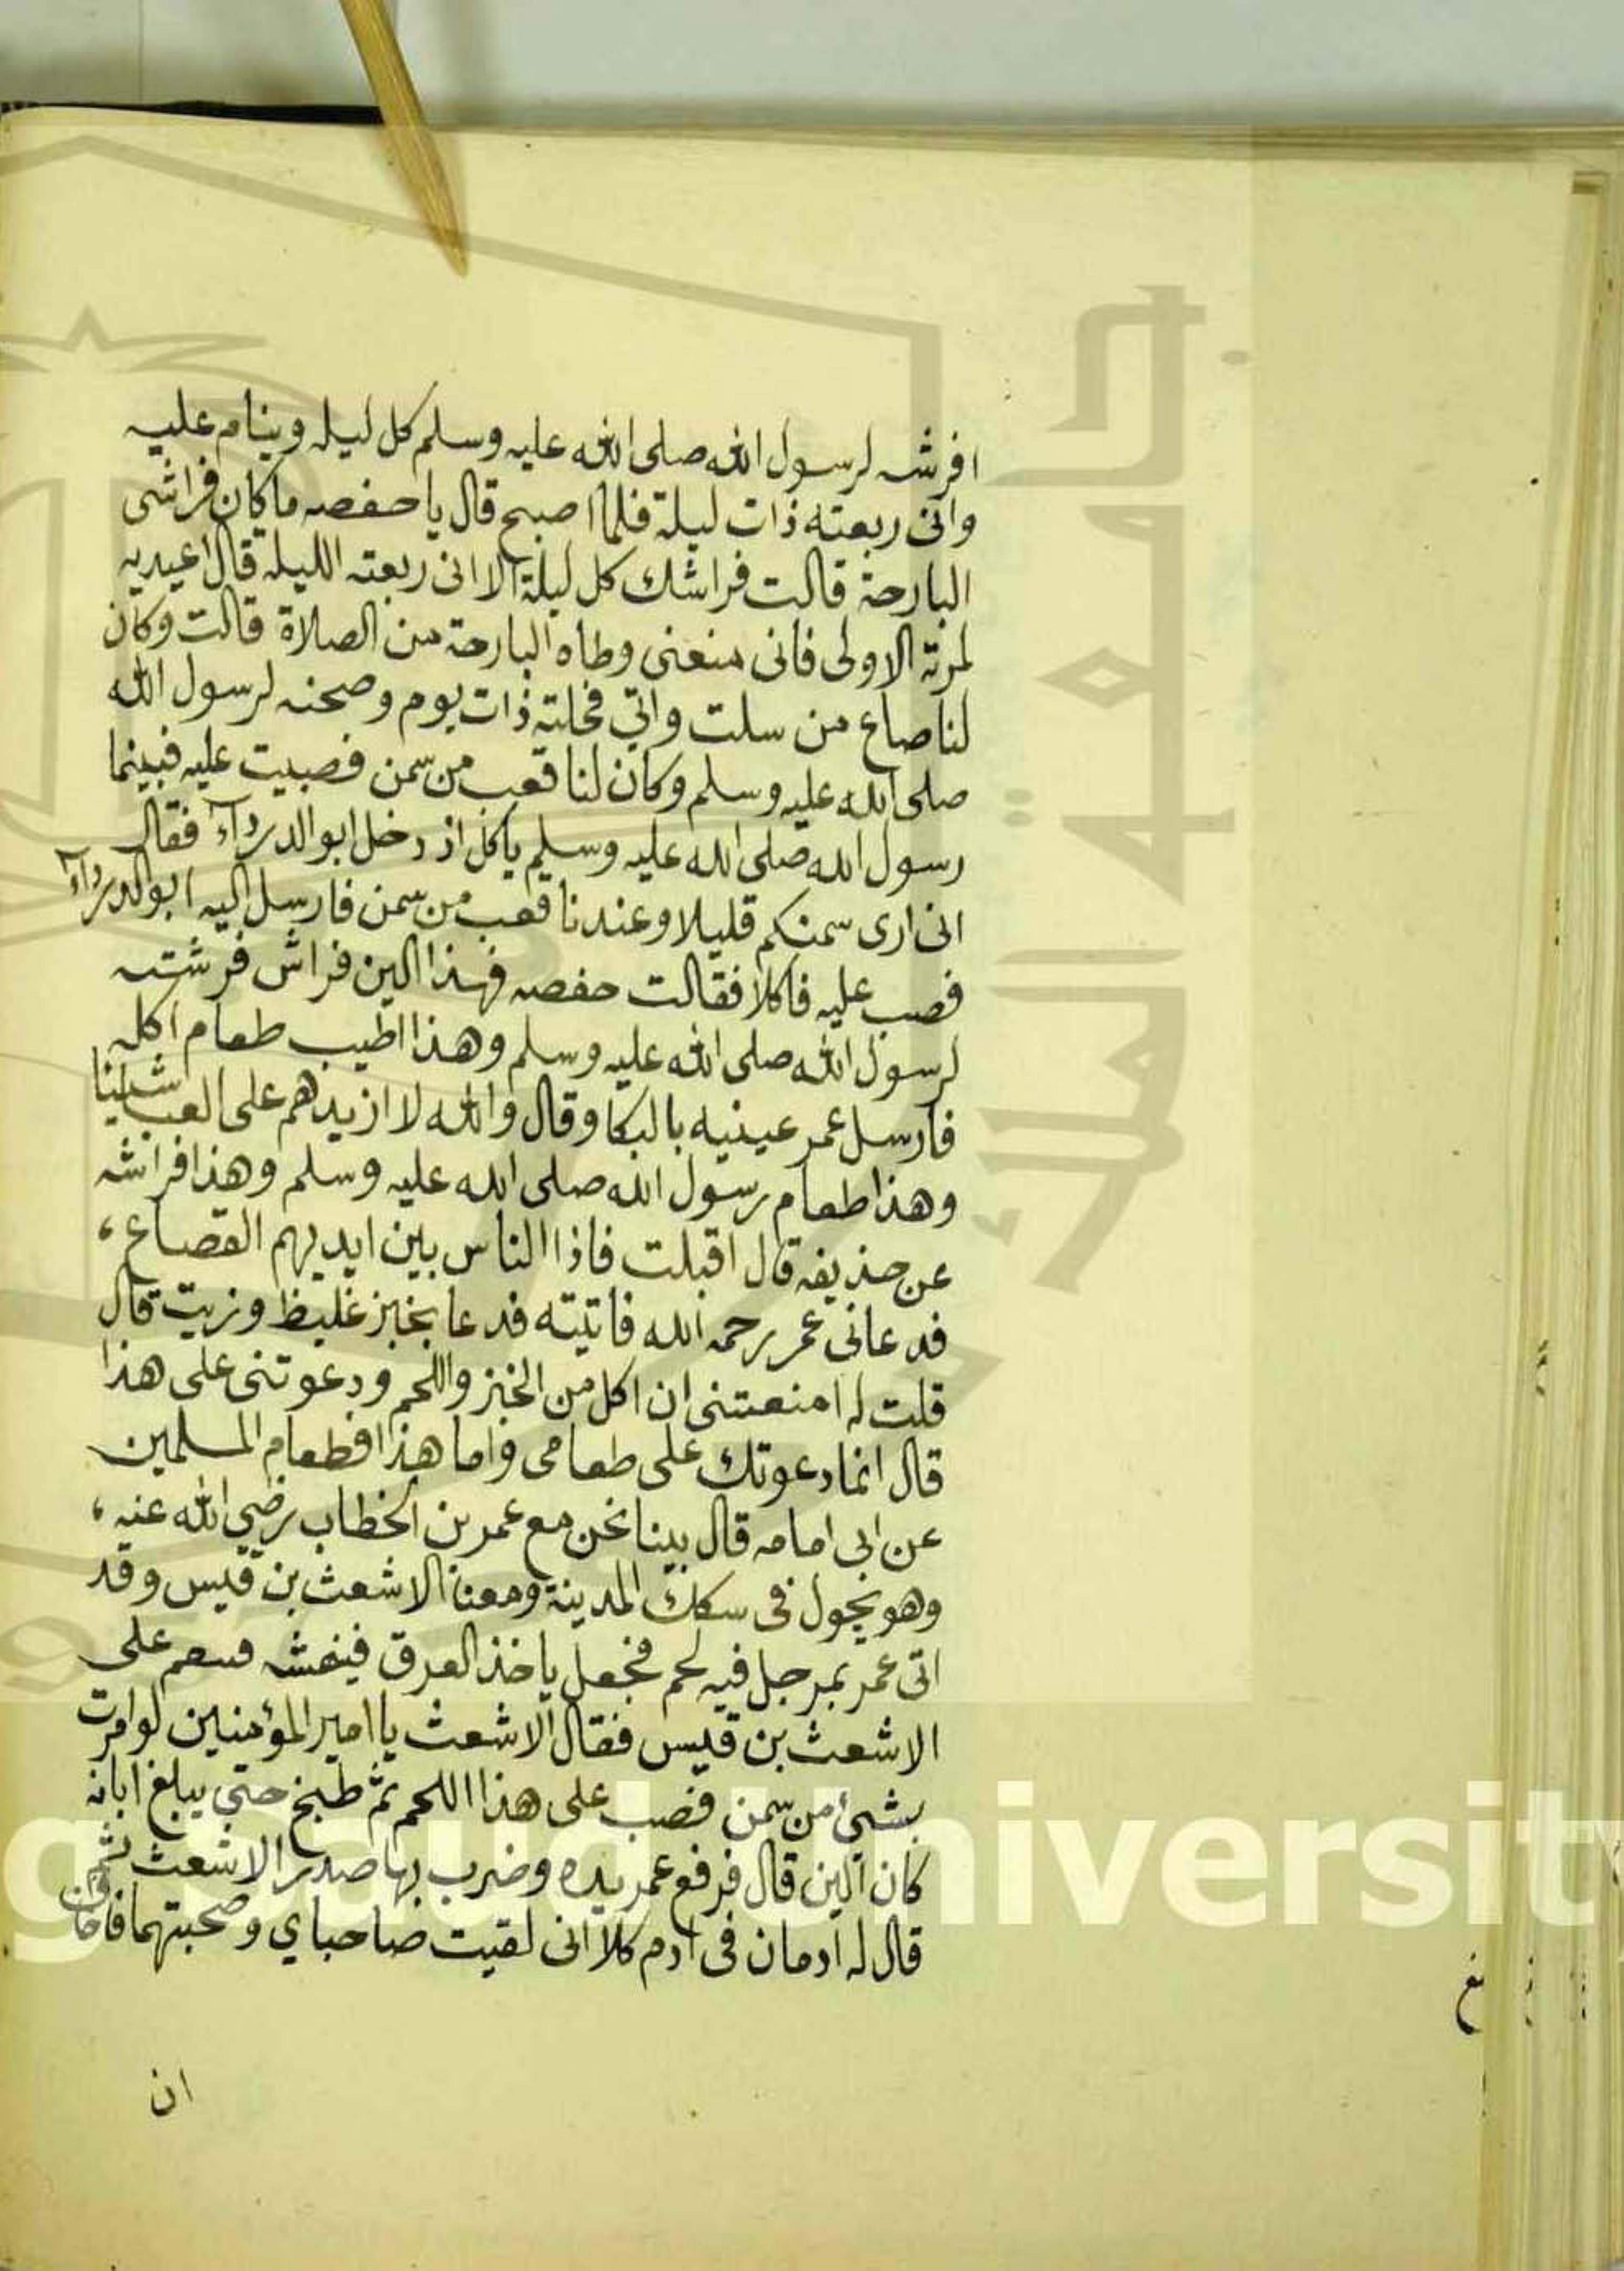 افرشه لرسول الله صلى الله عليه وسلم كل ليله وينام عليه
وانى ربعته ذات ليلة فلما اصبح قال يا حفصه ما كان فراشى
البارحة قالت فراشك كل ليلة الا انى ربعته الليله قال اعيديه
لمرته الاولى فانى منعنى وطاه البارحة من الصلاة قالت وكان
لنا صاع من سلت وانى نخلته ذات يوم وصحنه لرسول الله
صلى الله عليه وسلم وكان لنا قعب من سمن فصبيت عليه فبينما
رسول الله صلى الله عليه وسلم ياكل اذ دخل ابو الدرداء فقال
انى ارى سمنكم قليلا وعندنا قعب من سمن فارسل اليه ابو الدرداء
فصب عليه فاكلا فقالت حفصه فهذا الين فراش فرشته
لرسول الله صلى الله عليه وسلم وهذا اطيب طعام اكله
فارسل عمر عينيه بالبكا وقال والله لا ازيدهم على العب شيئا
وهذا طعام رسول الله صلى الله عليه وسلم وهذا فراشه
عن حذيفه قال اقبلت فاذا الناس بين ايديهم القصاع،
فدعانى عمر رحمه الله فاتيته فدعا بخبز غليظ وزيت قال
قلت له امنعتنى ان اكل من الخبز واللحم ودعوتنى على هذا
قال انما دعوتك على طعامى واما هذا فطعام المسلمين
عن ابى امامه قال بينا نحن مع عمر بن الخطاب رضي الله عنه،
وهو يجول فى سكك المدينة ومعنا الاشعث بن قيس وقد
اتى عمر بمرجل فيه لحم فجعل ياخذ العرق فينهشه على
الاشعث بن قيس فقال الاشعث يا امير المؤمنين لو امرت
بشيئ من سمن فصب على هذا اللحم ثم طبخ حتي يبلغ ابانه
كان الين قال فرفع عمر يده وضرب بها صدر الاشعث ثم
قال له ادمان فى ادم كلا انى لقيت صاحباي وصحبتهما فاخاف
ان
جامعة الملك
g Saud University